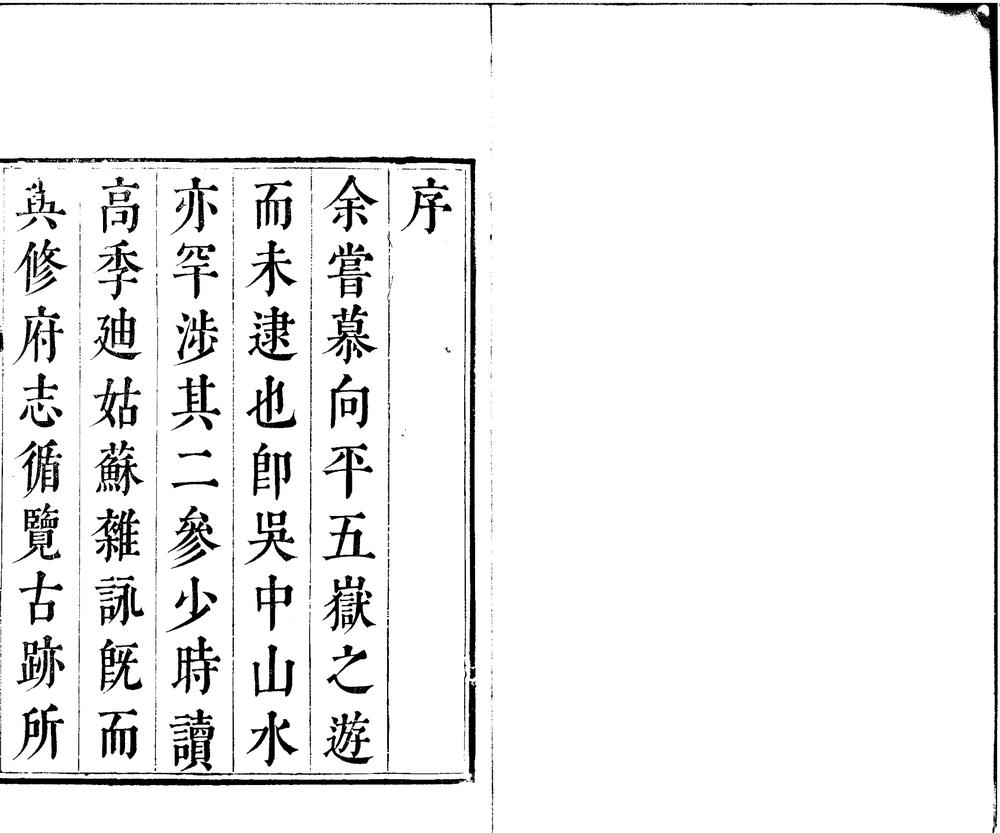 序
余嘗慕向平五嶽之遊
而未逮也卽吳中山水
亦罕涉其二參少時讀
高季廸姑蘇雜詠旣而
與修府志循覽古跡所